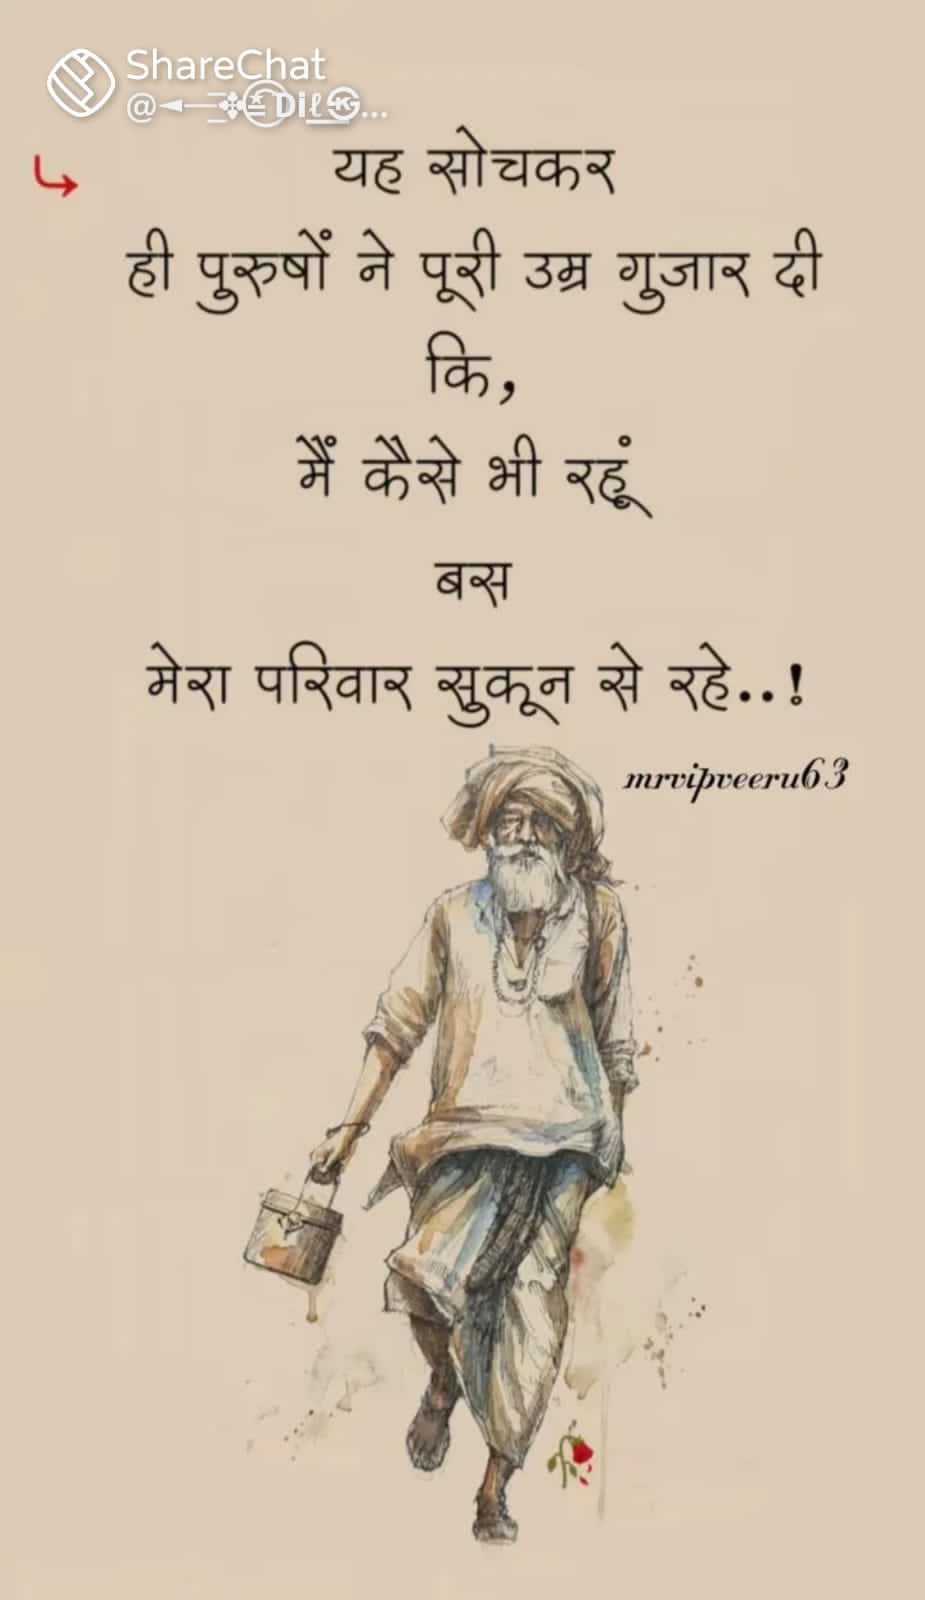 ShareChat
यह सोचकर
ही पुरुषों ने पूरी उम्र गुजार दी
कि,
मैं कैसे भी रहूं
बस
मेरा परिवार सुकून से रहे..!
mrvipveeru63